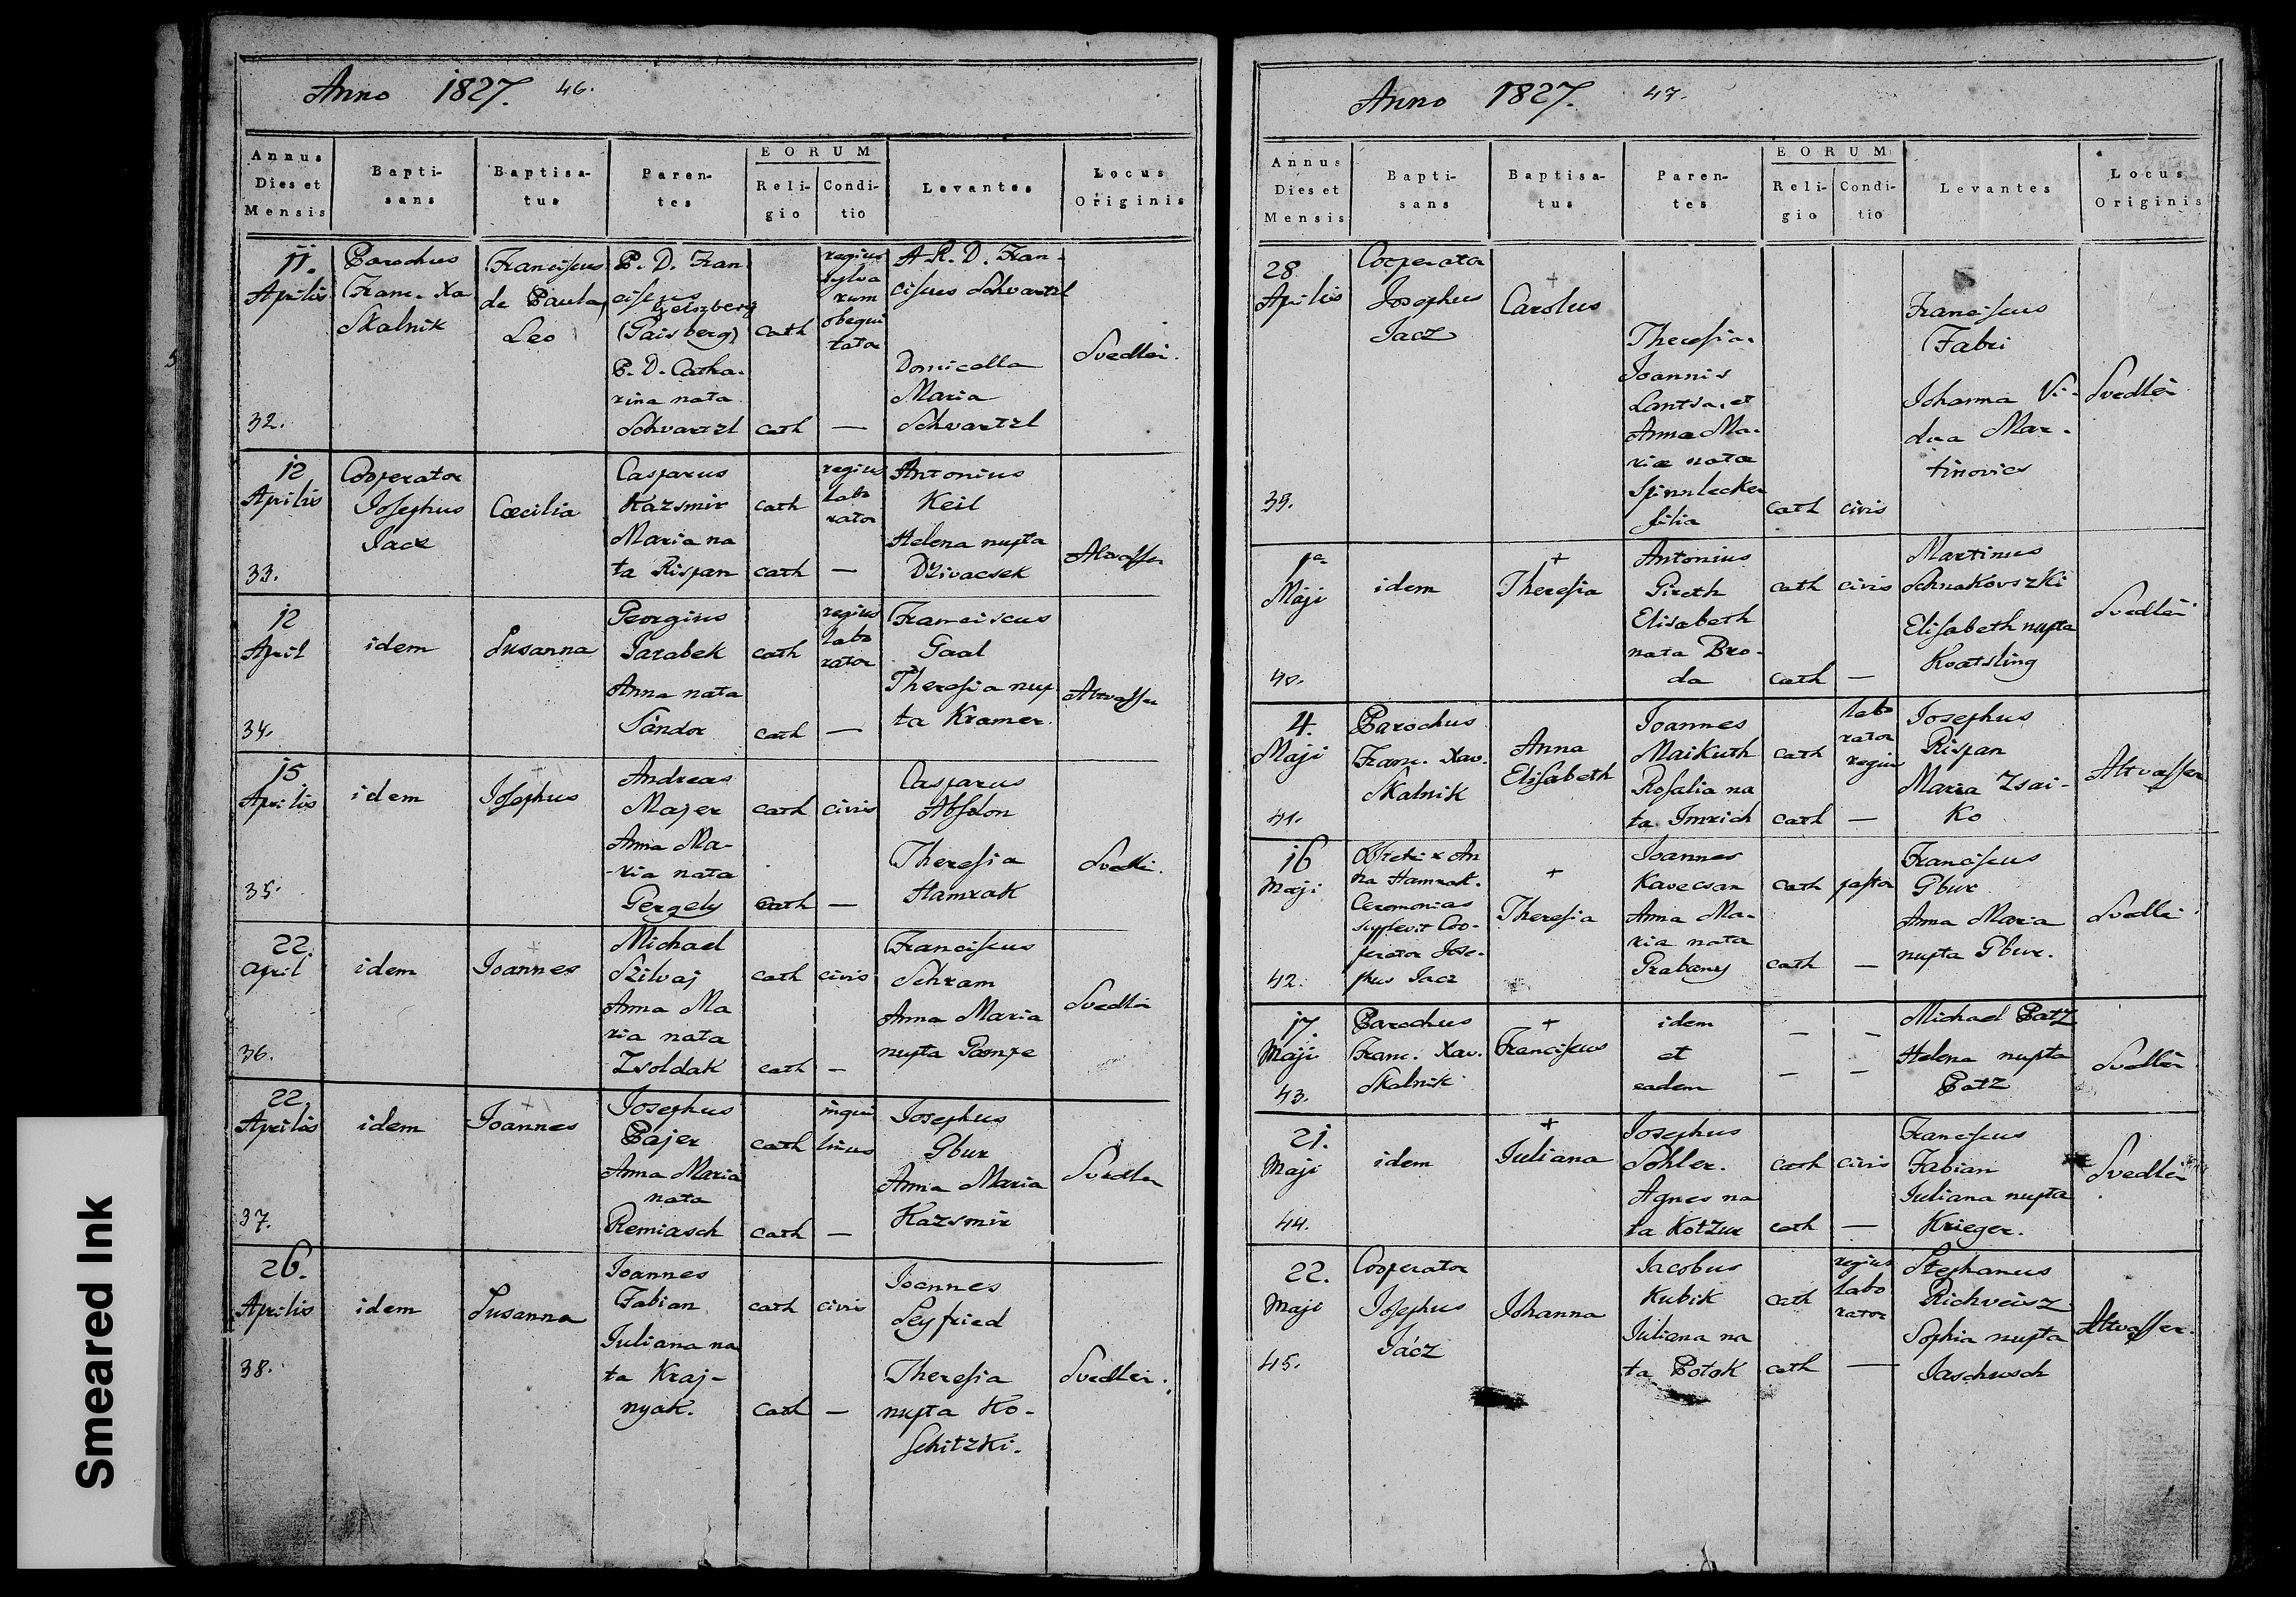 Anno 1827. 46.
Annus Dies et Mensis
Baptisans
Baptisatus
Parentes
EORUM
Religio
Conditio
Levantes
Locus Originis
11. Aprilis
32.
Parochus
Franc. Xa
Skalnik
Franciscus
de Paula,
Leo
P. D. Fran
ciscus
Geiszberg
(Gaisberg)
P. D. Catha-
rina nata
Schvartzl
cath
cath
regius
sylva
rum
obequi
tator
—
A. R. D. Fran-
ciscus Schvartzl
Domicella
Maria
Schvartzl
Svedlér.
12
Aprilis
33.
Cooperator
Josephus
Jacz
Cæcilia
Casparus
Kazsmir
Maria na
ta Rispan
cath
cath
regius
labo
rator
—
Antonius
Keil
Helena nupta
Dzivacsek
Altvasser
12
April
34.
idem
Susanna
Georgius
Jarabek
Anna nata
Sándor
cath
cath
regius
labo
rator
—
Franciscus
Gaal
Theresia nup
ta Kramer.
Altvasser
15
Aprilis
35.
idem
Josephus
Andreas
Majer
Anna Ma-
ria nata
Gergely
cath
cath
civis
—
Casparus
Absolon
Theresia
Hamrak
Svedlér.
22.
April
36.
idem
Joannes
Michael
Szilvaj
Anna Ma
ria nata
Zsoldak
cath
cath
civis
—
Franciscus
Schram
Anna Maria
nupta Pampe
Svedlér
22.
Aprilis
37.
idem
Joannes
Josephus
Pajer
Anna Maria
nata
Remiasch
cath
cath
inqui
linus
—
Josephus
Gbur
Anna Maria
Kazsmir
Svedler
26.
Aprilis
38.
idem
Susanna
Joannes
Fabian
Juliana na
ta Kraj-
nyak.
cath
cath
civis
—
Joannes
Seyfried
Theresia
nupta Ko-
schitzki.
Svedlér.
Anno 1827. 47.
Annus Dies et Mensis
Baptisans
Baptisatus
Parentes
EORUM
Religio
Conditio
Levantes
Locus Originis
28
Aprilis
39.
Cooperator
Josephus
Jacz
+
Carolus
Theresia.
Joannis
Lantsa, et
Anna Ma-
ria nata
Spinnlecker
filia
cath
civis
Franciscus
Fabri
Johanna Vi-
dua Mar-
tinovics
Svedlér
1a
Maji
40.
idem
+
Theresia
Antonius
Gireth
Elisabeth
nata Bro-
da
cath
cath
civis
—
Martinus
Schnakovszki
Elisabeth nupta
Koatsling
Svedlér
4.
Maji
41.
Parochus
Franc. Xav.
Skalnik
Anna
Elisabeth
Joannes
Maikuth
Rosalia na
ta Imrich
cath
cath
labo
rator
regius
—
Josephus
Rispan
Maria Zsai-
ko
Altvasser
16
Maji
42.
Obstetrix An
na Hamrak.
Ceremonias
supplevit Coo-
perator Jose-
phus Jacz
+
Theresia
Joannes
Kavecsan
Anna Ma-
ria nata
Grabany
cath
cath
pastor
—
Franciscus
Gbur
Anna Maria
nupta Gbur.
Svedlér
17.
Maji
43.
Parochus
Franc. Xav.
Skalnik
+
Franciscus
idem
et
eadem
—
—
—
—
Michael Patz
Helena nupta
Patz
Svedlér
21.
Maji
44.
idem
+
Juliana
Josephus
Sohler.
Agnes na
ta Kotzur
cath
cath
civis
—
Franciscus
Fabian
Juliana nupta
Krieger.
Svedlér
22.
Maji
45.
Cooperator
Josephus
Jácz
Johanna
Jacobus
Kubik
Juliana na
ta Potok
cath
cath
regius
labo
rator
—
Stephanus
Richveisz
Sophia nupta
Jaschusch
Altvasser.
Smeared Ink